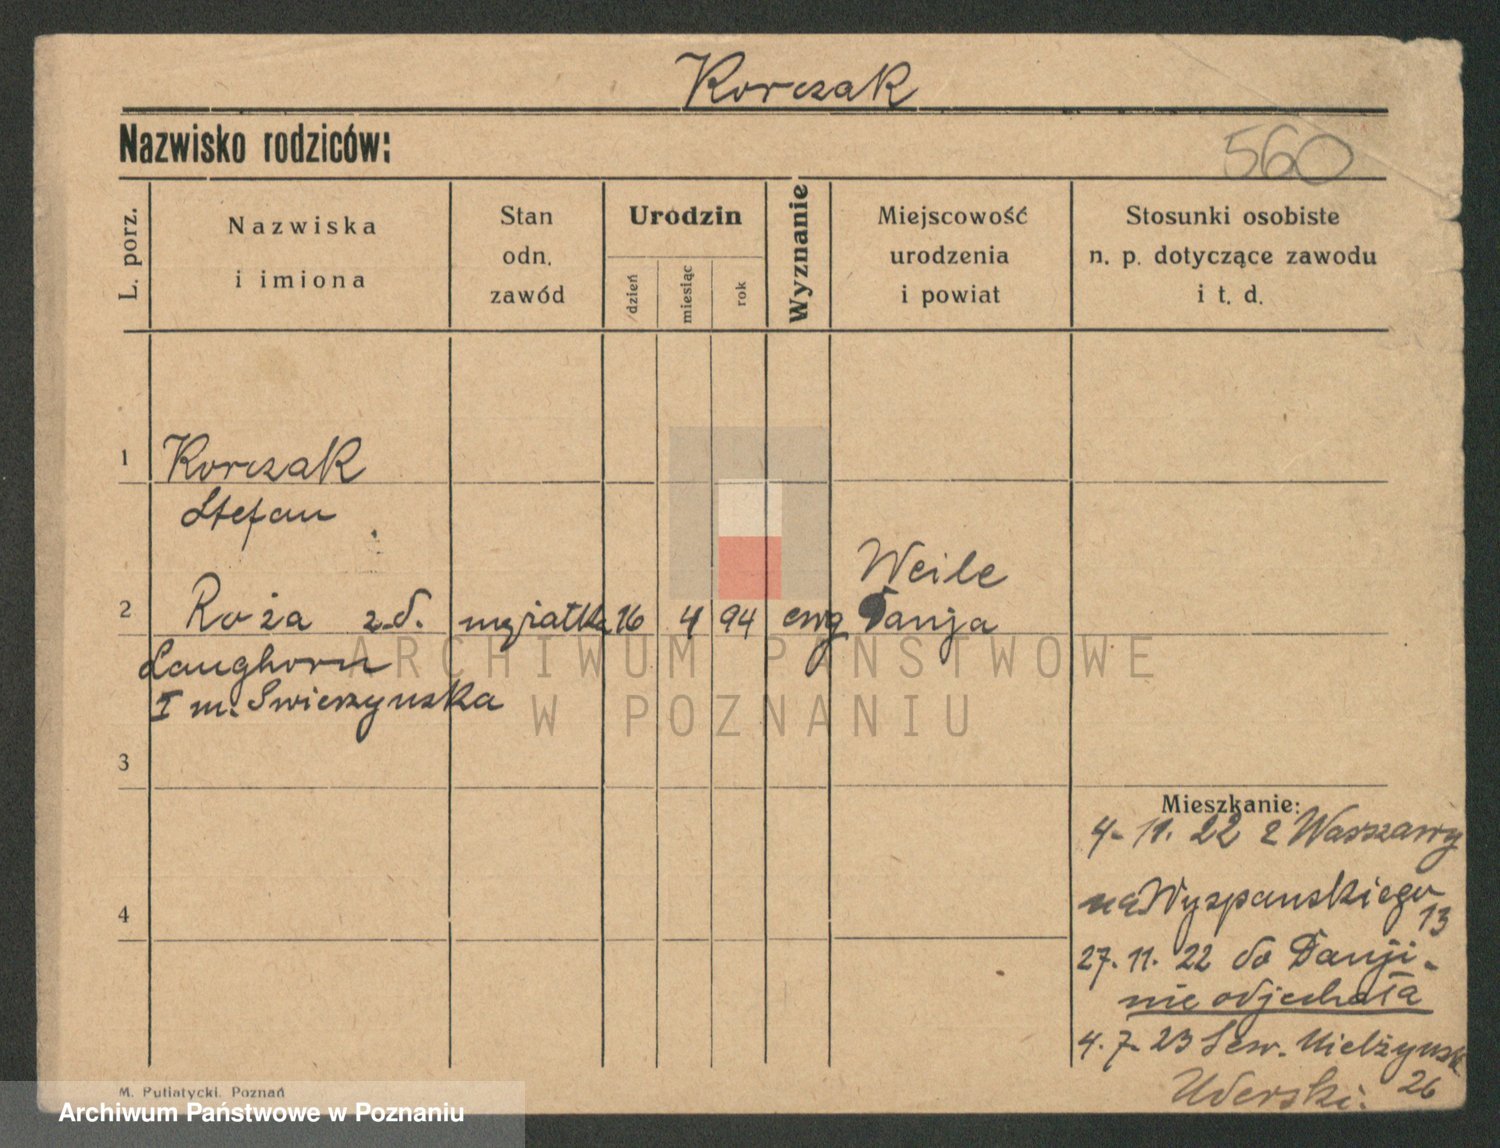 Korczak
Nazwisko rodziców:
560
L. porz.
Nazwiska
i imiona
Stan
odn.
zawód
Urodzin
dzień
miesiąc
rok
Wyznanie
Miejscowość
urodzenia
i powiat
Stosunki osobiste
n. p. dotyczące zawodu
i t. d.
1 Korczak
Stefan
Weile
2 Roża z d. mężatka 16 4 94 ewg Danja
Langhorn
I m. Swierzynska
3
Mieszkanie:
4. 11. 22 z Warszawy
na Wyspanskiego
13
4
27. 11. 22 do Danji -
nie odjechała
4. 7. 23 Sew. Mielżynsk
26
M. Putiatycki, Poznań
ARCHIWUM PAŃSTWOWE
W POZNANIU
Archiwum Państwowe w Poznaniu